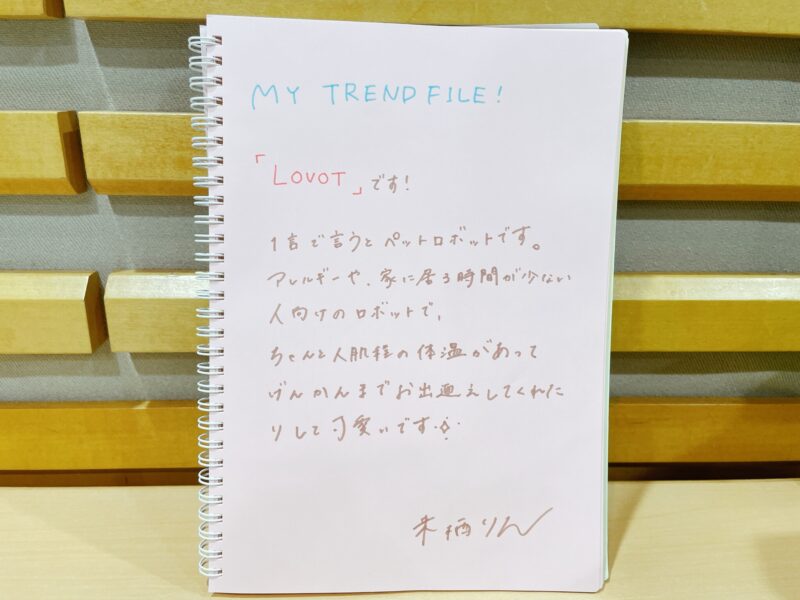 MY TREND FILE!
「LOVOT」です!
1言で言うとペットロボットです。
アレルギーや、家に居る時間が少ない
人向けのロボットで、
ちゃんと人肌程の体温があって
げんかんまでお出迎えしてくれた
りして可愛いです
来栖りん